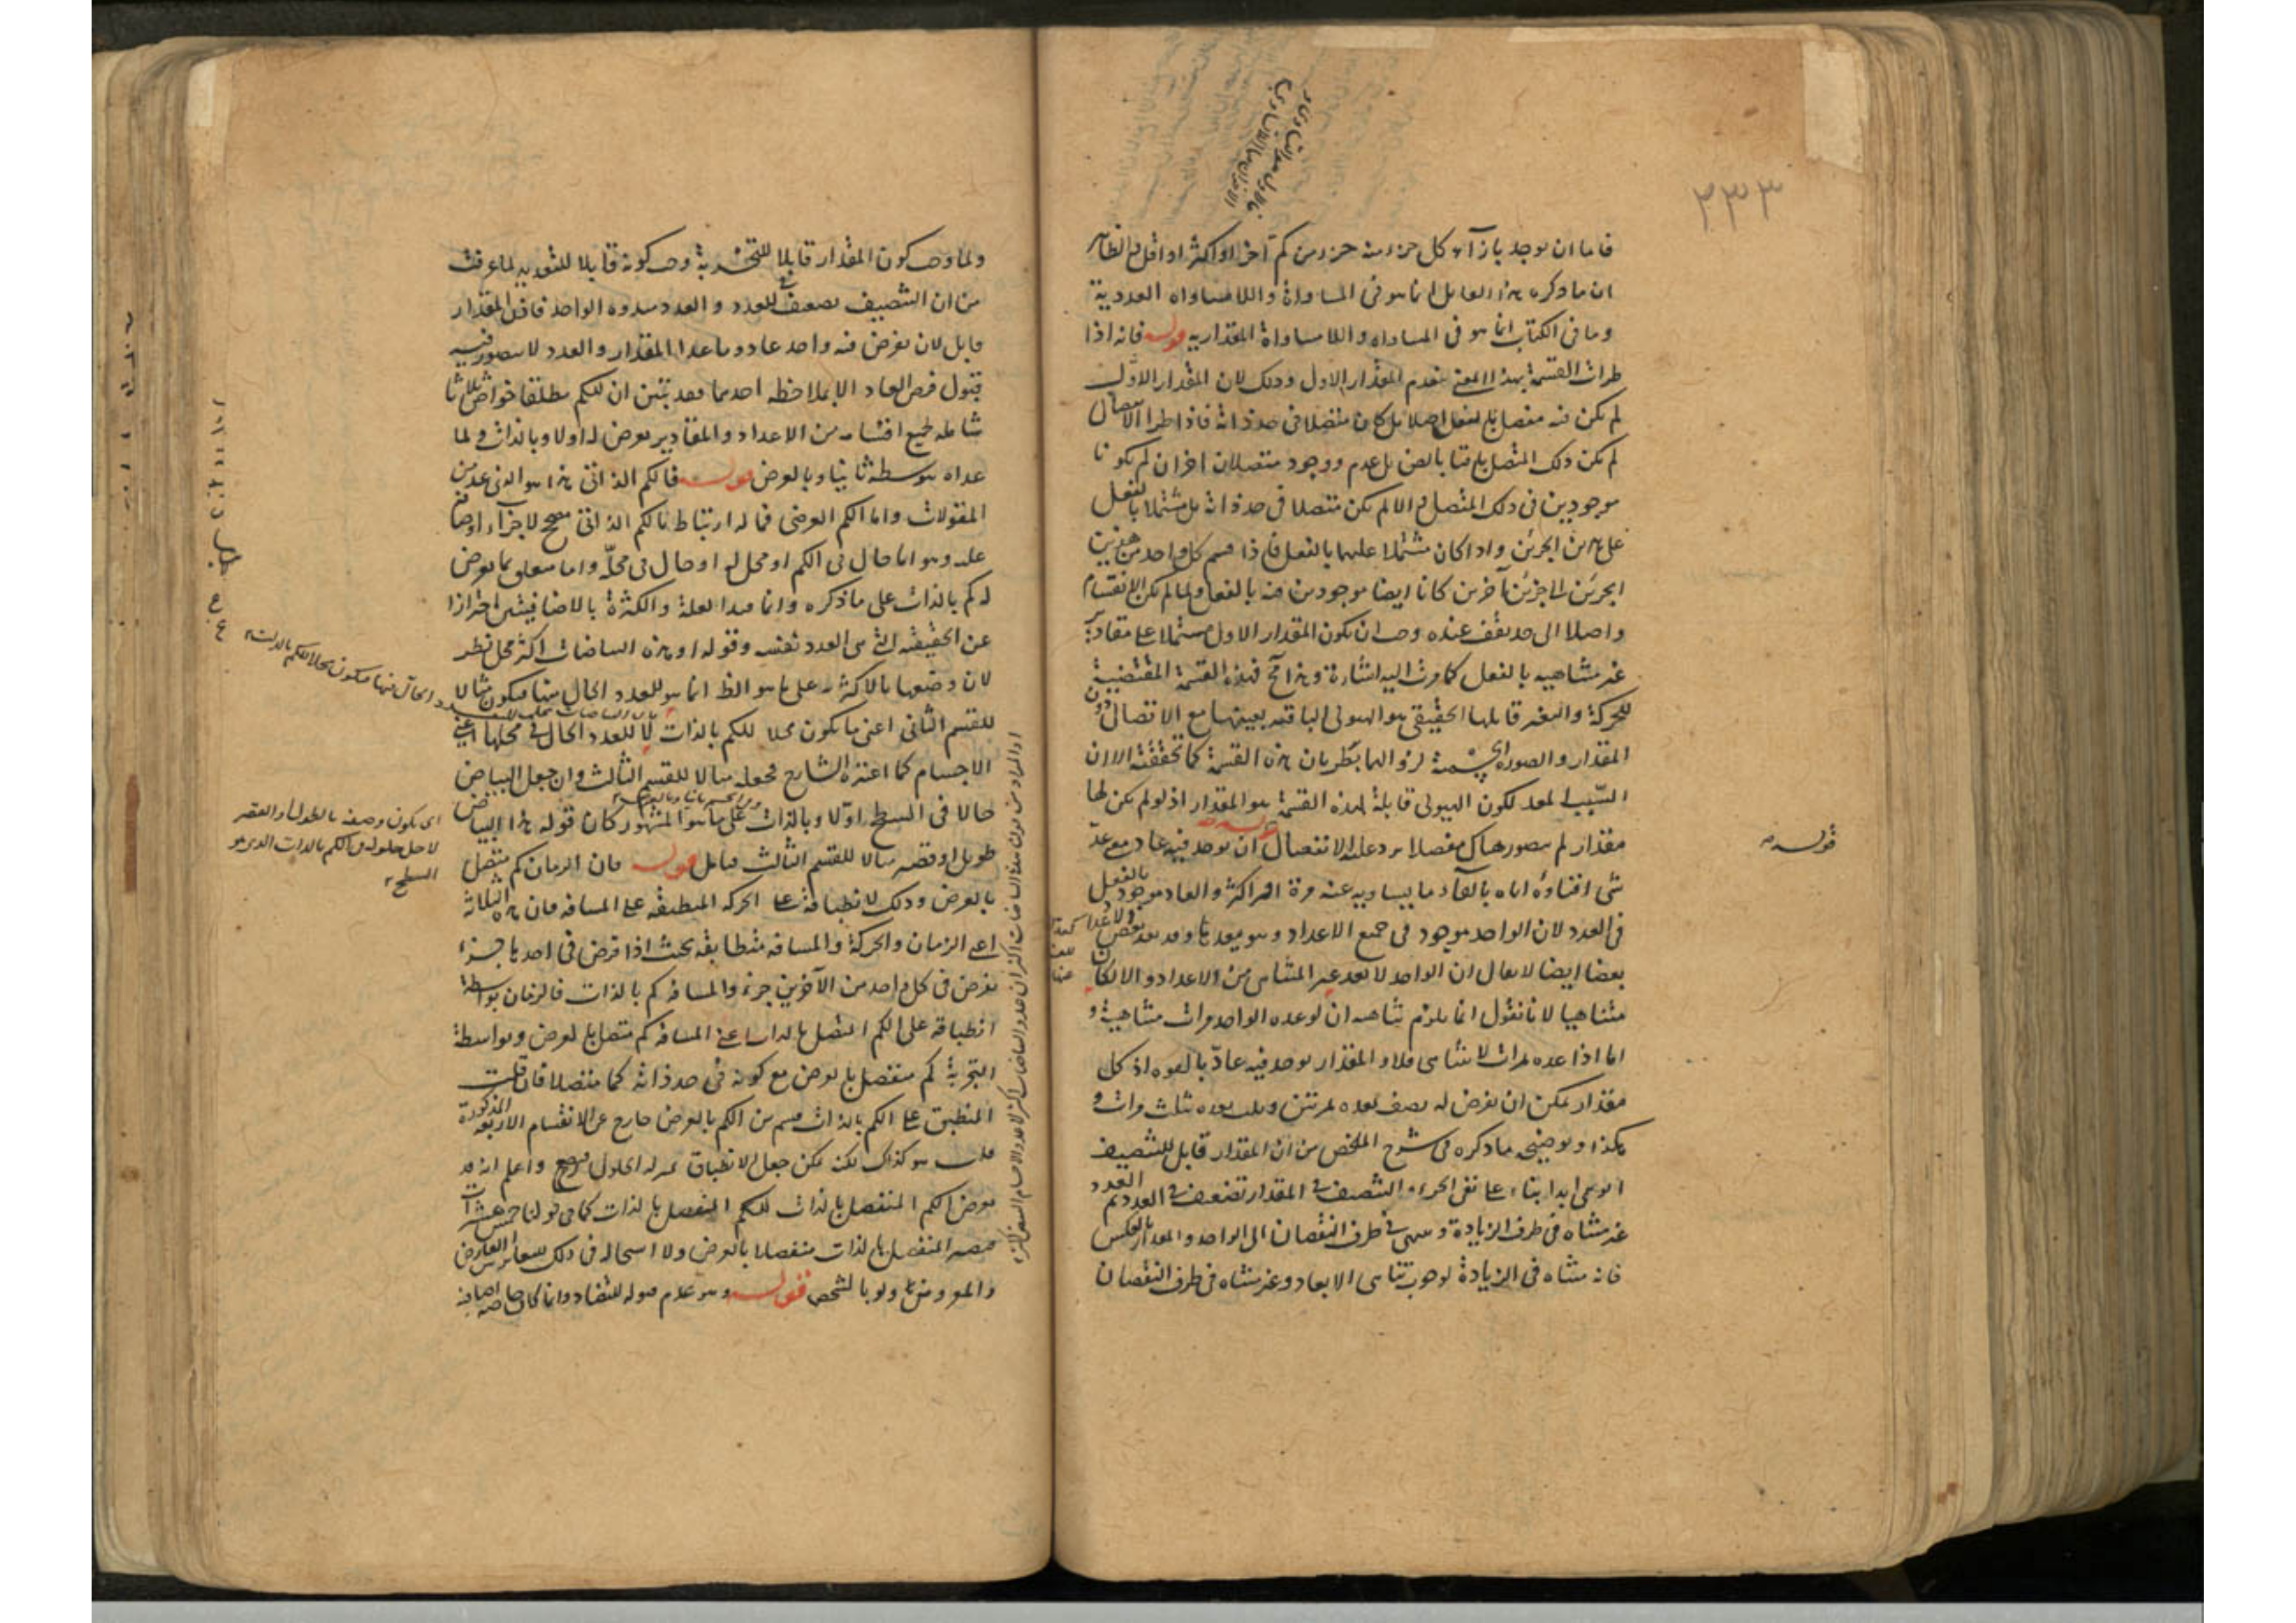 ٢٣٣
فاما ان يوجد بازآء كل جزء منه جزء من كم آخر او اكثر او اقل والظاهر
ان ما ذكره هذا القايل انما هو فى المساواة واللامساواه العددية
وما فى الكتاب انما هو فى المساواه واللامساواة المقداريه قوله فانه اذا
طرات القسمة بهذا المعنى ينعدم المقدار الاول وذلك لان المقدار الاول
لم يكن فيه مفصل بالفعل اصلا بل كان متصلا فى حد ذاته فاذا طرا الانفصال
لم يكن ذلك المتصل باقيا بالعين بل عدم ووجد متصلان اخران لم يكونا
موجودين فى ذلك المتصل والا لم يكن متصلا فى حد ذاته بل مشتملا بالفعل
على هذين الجزئين واذا كان مشتملا عليهما بالفعل فاذا قسم كل واحد من هذين
الجزئين الى جزئين آخرين كانا ايضا موجودين فيه بالفعل ولما لم يكن الانقسام
واصلا الى حد يقف عنده وجب ان يكون المقدار الاول مشتملا على مقادير
غير متناهيه بالفعل كما مرت اليه اشارة وهذا مح فهذه القسمة المقتضية
للحركة والتغير قابلها الحقيقى هو الهيولى الباقيه بعينها مع الانفصال دون
المقدار والصورة الجسمية لزوالهما بطريان هذه القسمة كما تحققته الا ان
السبب المعد لكون الهيولى قابلة لهذه القسمة هو المقدار اذ لو لم يكن لها
مقدار لم يتصور هناك مفصل يرد عليه الانفصال قوله ان يوجد فيه عاد مع عد
شى افناؤه اياه بالقآء ما يساويه عنه مرة او اكثر والعاد موجود بالفعل
فى العدد لان الواحد موجود فى جميع الاعداد وهو يعدها وقد يعد بعض الاعداد
بعضا ايضا لا يقال ان الواحد لا يعد غير المتناهى من الاعداد والا لكان
متناهيا لانا نقول انما يلزم تناهيه ان لو عده الواحد مرات متناهية و
اما اذا عده مرات لا تتناهى فلا والمقدار يوجد فيه عاد بالقوه اذ كل
مقدار يمكن ان يفرض له نصف يعده مرتين وثلث يعده ثلث مرات و
هكذا ويوضحه ما ذكره فى شرح الملخص من ان المقدار قابل للتنصيف
الوهمى ابدا بناء على نفى الجزء والتنصيف فى المقدار تضعيف فى العدد ثم العدد
غير متناه فى طرف الزيادة وينتهى فى طرف النقصان الى الواحد والمقدار بالعكس
فانه متناه فى الزيادة لوجوب تناهى الابعاد وغير متناه فى طرف النقصان
قوله
ولما وجب كون المقدار قابلا للتجزية وجب كونه قابلا للتعديد لما عرفت
من ان التنصيف تضعيف للعدد والعدد مبدؤه الواحد فاذن المقدار
قابل لان يفرض فيه واحد عاد وما عدا المقدار والعدد لا يتصور فيه
قبول فرض العاد الا بملاحظة احدهما فقد تبين ان للكم مطلقا خواص ثلاثا
شاملة لجميع اقسامه من الاعداد والمقادير يعرض له اولا وبالذات ولما
عداه بتوسطه ثانيا وبالعرض قوله فالكم الذاتى هذا هو الذى عد من
المقولات واما الكم العرضى فما له ارتباط بالكم الذاتى مصحح لاجراء اوصافه
عليه وهو اما حال فى الكم او محل له او حال فى محله واما متعلق بما يعرض
له كم بالذات على ما ذكره وانما قيد القلة والكثرة بالاضافيتين احترازا
عن الحقيقة التى هى العدد نفسه وقوله او هذه البياضات اكثر محل نظر
لان وصفها بالاكثرية على ما هو الظ انما هو للعدد الحال فيها فيكون مثالا
للقسم الثانى اعنى ما يكون محلا للكم بالذات لا للعدد الحال فى محلها اعنى
الاجسام كما اعتبره الشارح فجعله مثالا للقسم الثالث وان جعل البياض
حالا فى السطح اولا وبالذات على ما هو المشهور كان قوله هذا البياض
طويل او قصير مثالا للقسم الثالث فتامل قوله فان الزمان كم متصل
بالعرض وذلك لانطباقه على الحركه المنطبقه على المسافه فان هذه الثلاثة
اعنى الزمان والحركة والمسافه متطابقه بحيث اذا فرض فى احدها جزء
يفرض فى كل واحد من الآخرين جزء والمسافه كم بالذات فالزمان بواسطة
انطباقه على الكم المتصل بالذات اعنى المسافه كم متصل بالعرض وبواسطة
التجزية كم منفصل بالعرض مع كونه فى حد ذاته كما متصلا فان قلت
المنطبق على الكم بالذات قسم من الكم بالعرض خارج عن الاقسام الاربعة المذكورة
قلت هو كذلك لكن يمكن جعل الانطباق بمنزلة الحلول فيرجع واعلم انه قد
يعرض الكم المنفصل بالذات للكم المنفصل بالذات كما فى قولنا خمس عشرات
فيصير المنفصل بالذات منفصلا بالعرض ولا استحاله فى ذلك لتغاير العارض
والمعروض ولو بالشخص قوله وهو عدم قبوله للتضاد وانما كان خاصة اضافية
اى يكون وصفه بالطول او القصر
لاجل حلوله فى الكم بالذات الذى هو
السطح